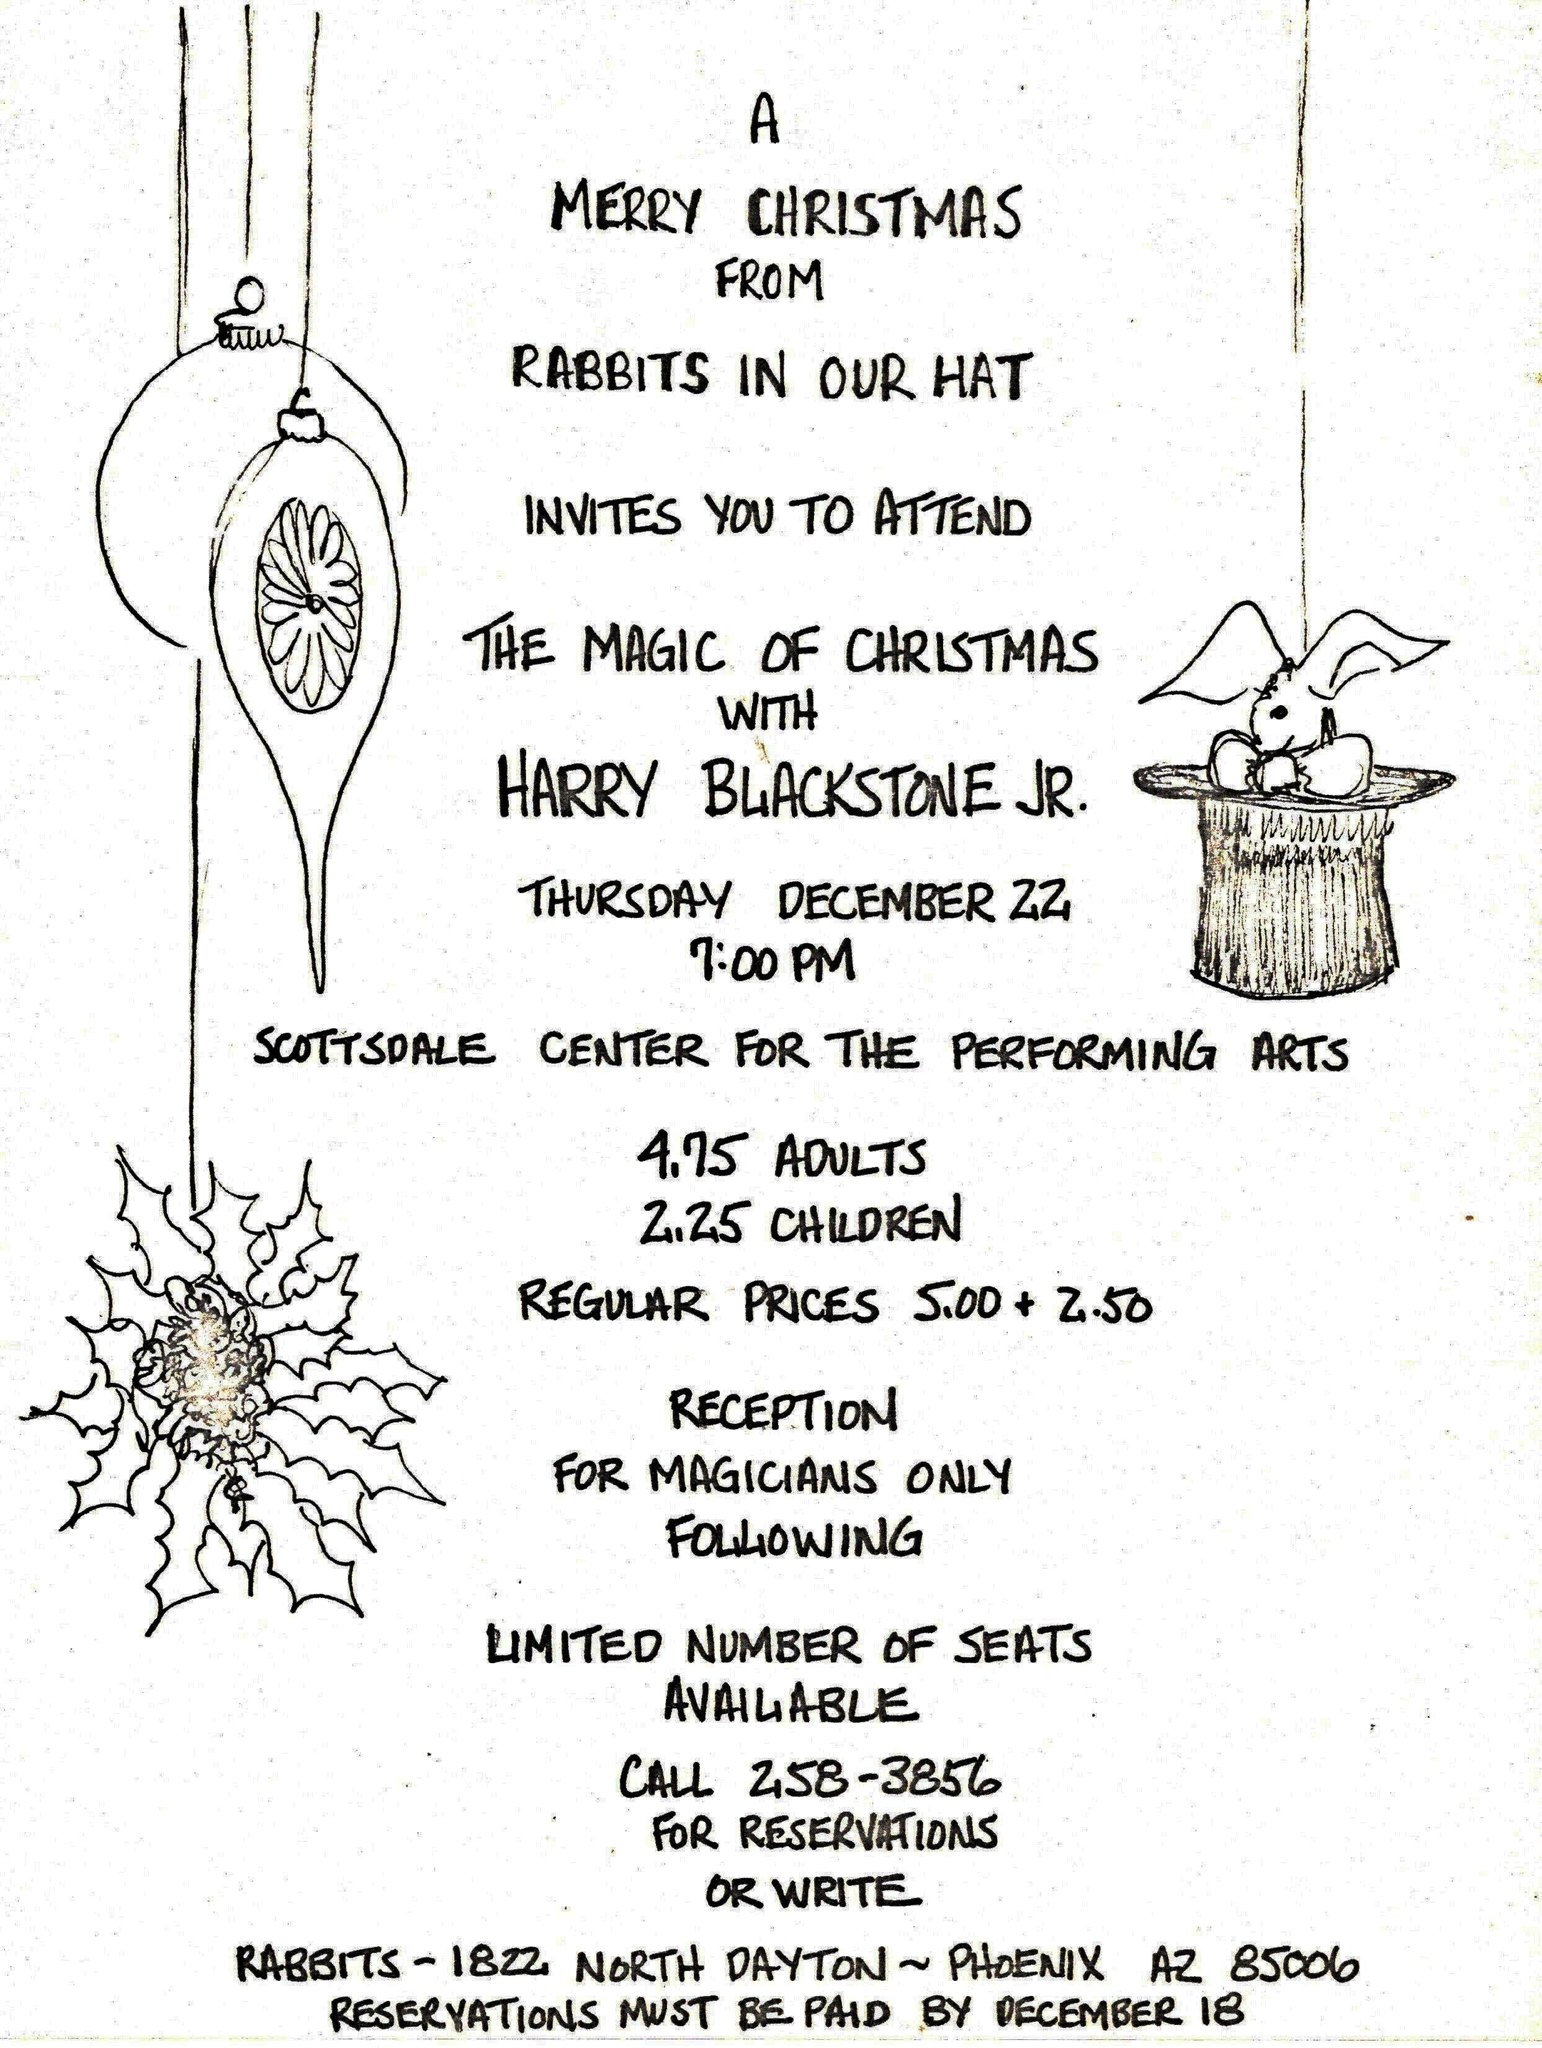 A
MERRY CHRISTMAS
FROM
RABBITS IN OUR HAT
INVITES YOU TO ATTEND
THE MAGIC OF CHRISTMAS
WITH
HARRY BLACKSTONE JR.
THURSDAY DECEMBER 22
7:00 PM
SCOTTSDALE CENTER FOR THE PERFORMING ARTS
4.75 ADULTS
2.25 CHILDREN
REGULAR PRICES 5.00 + 2.50
RECEPTION
FOR MAGICIANS ONLY
FOLLOWING
LIMITED NUMBER OF SEATS
AVAILABLE
CALL 258-3856
FOR RESERVATIONS
OR WRITE
RABBITS - 1822 NORTH DAYTON ~ PHOENIX AZ 85006
RESERVATIONS MUST BE PAID BY DECEMBER 18